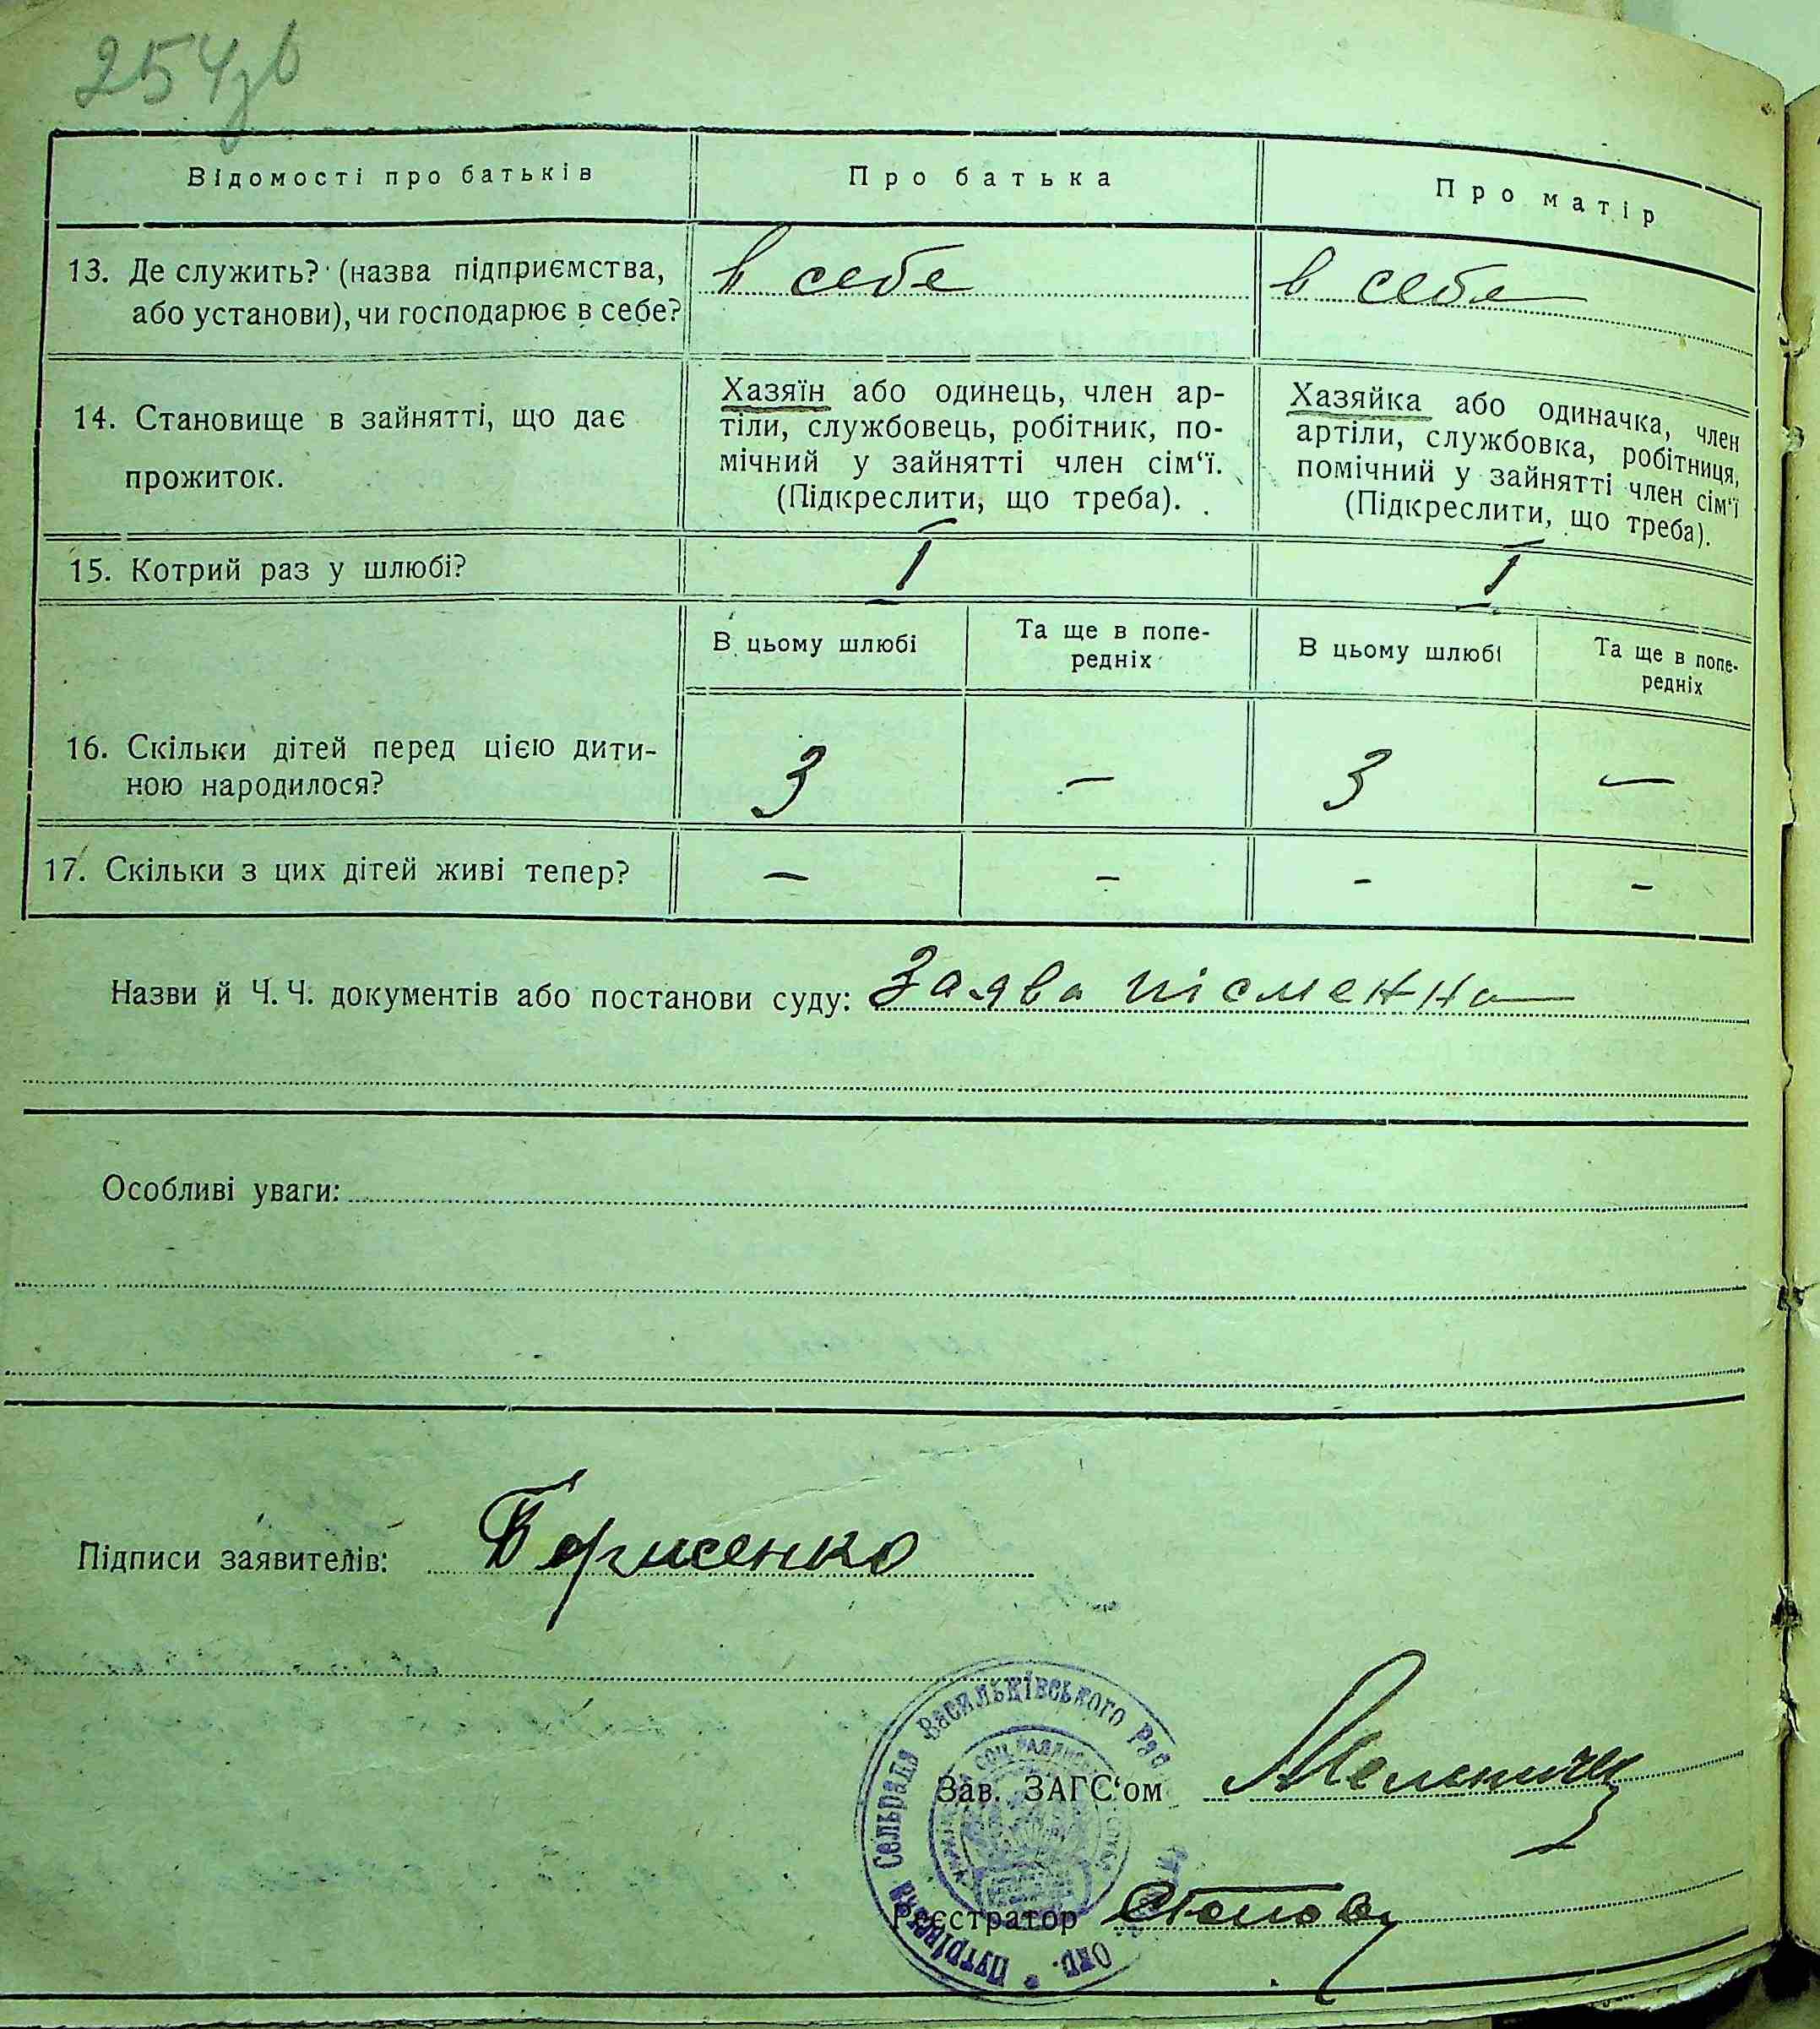 254зв
Відомості про батьків Про батька Про матір
13. Де служить? (назва підприємства, в себе в себе
або установи), чи господарює в себе?
14. Становище в зайнятті, що дає
прожиток.
Хазяїн або одинець, член ар-
тіли, службовець, робітник, по-
мічний у зайнятті член сім‘ї.
(Підкреслити, що треба).
Хазяйка або одиначка, член
артіли, службовка, робітниця,
помічний у зайнятті член сім‘ї
(Підкреслити, що треба).
15. Котрий раз у шлюбі? 1 1
В цьому шлюбі Та ще в попе-
редніх
В цьому шлюбі Та ще в попе-
редніх
16. Скільки дітей перед цією дити-
ною народилося? 3 — 3 —
17. Скільки з цих дітей живі тепер? — - - -
Назви й Ч. Ч. документів або постанови суду: Заява пісменна
Особливі уваги:
Підписи заявителів: Борисенко
Зав. ЗАГС‘ом
Реєстратор
Путрівська Сельрада Васильківського Рай
Окр.